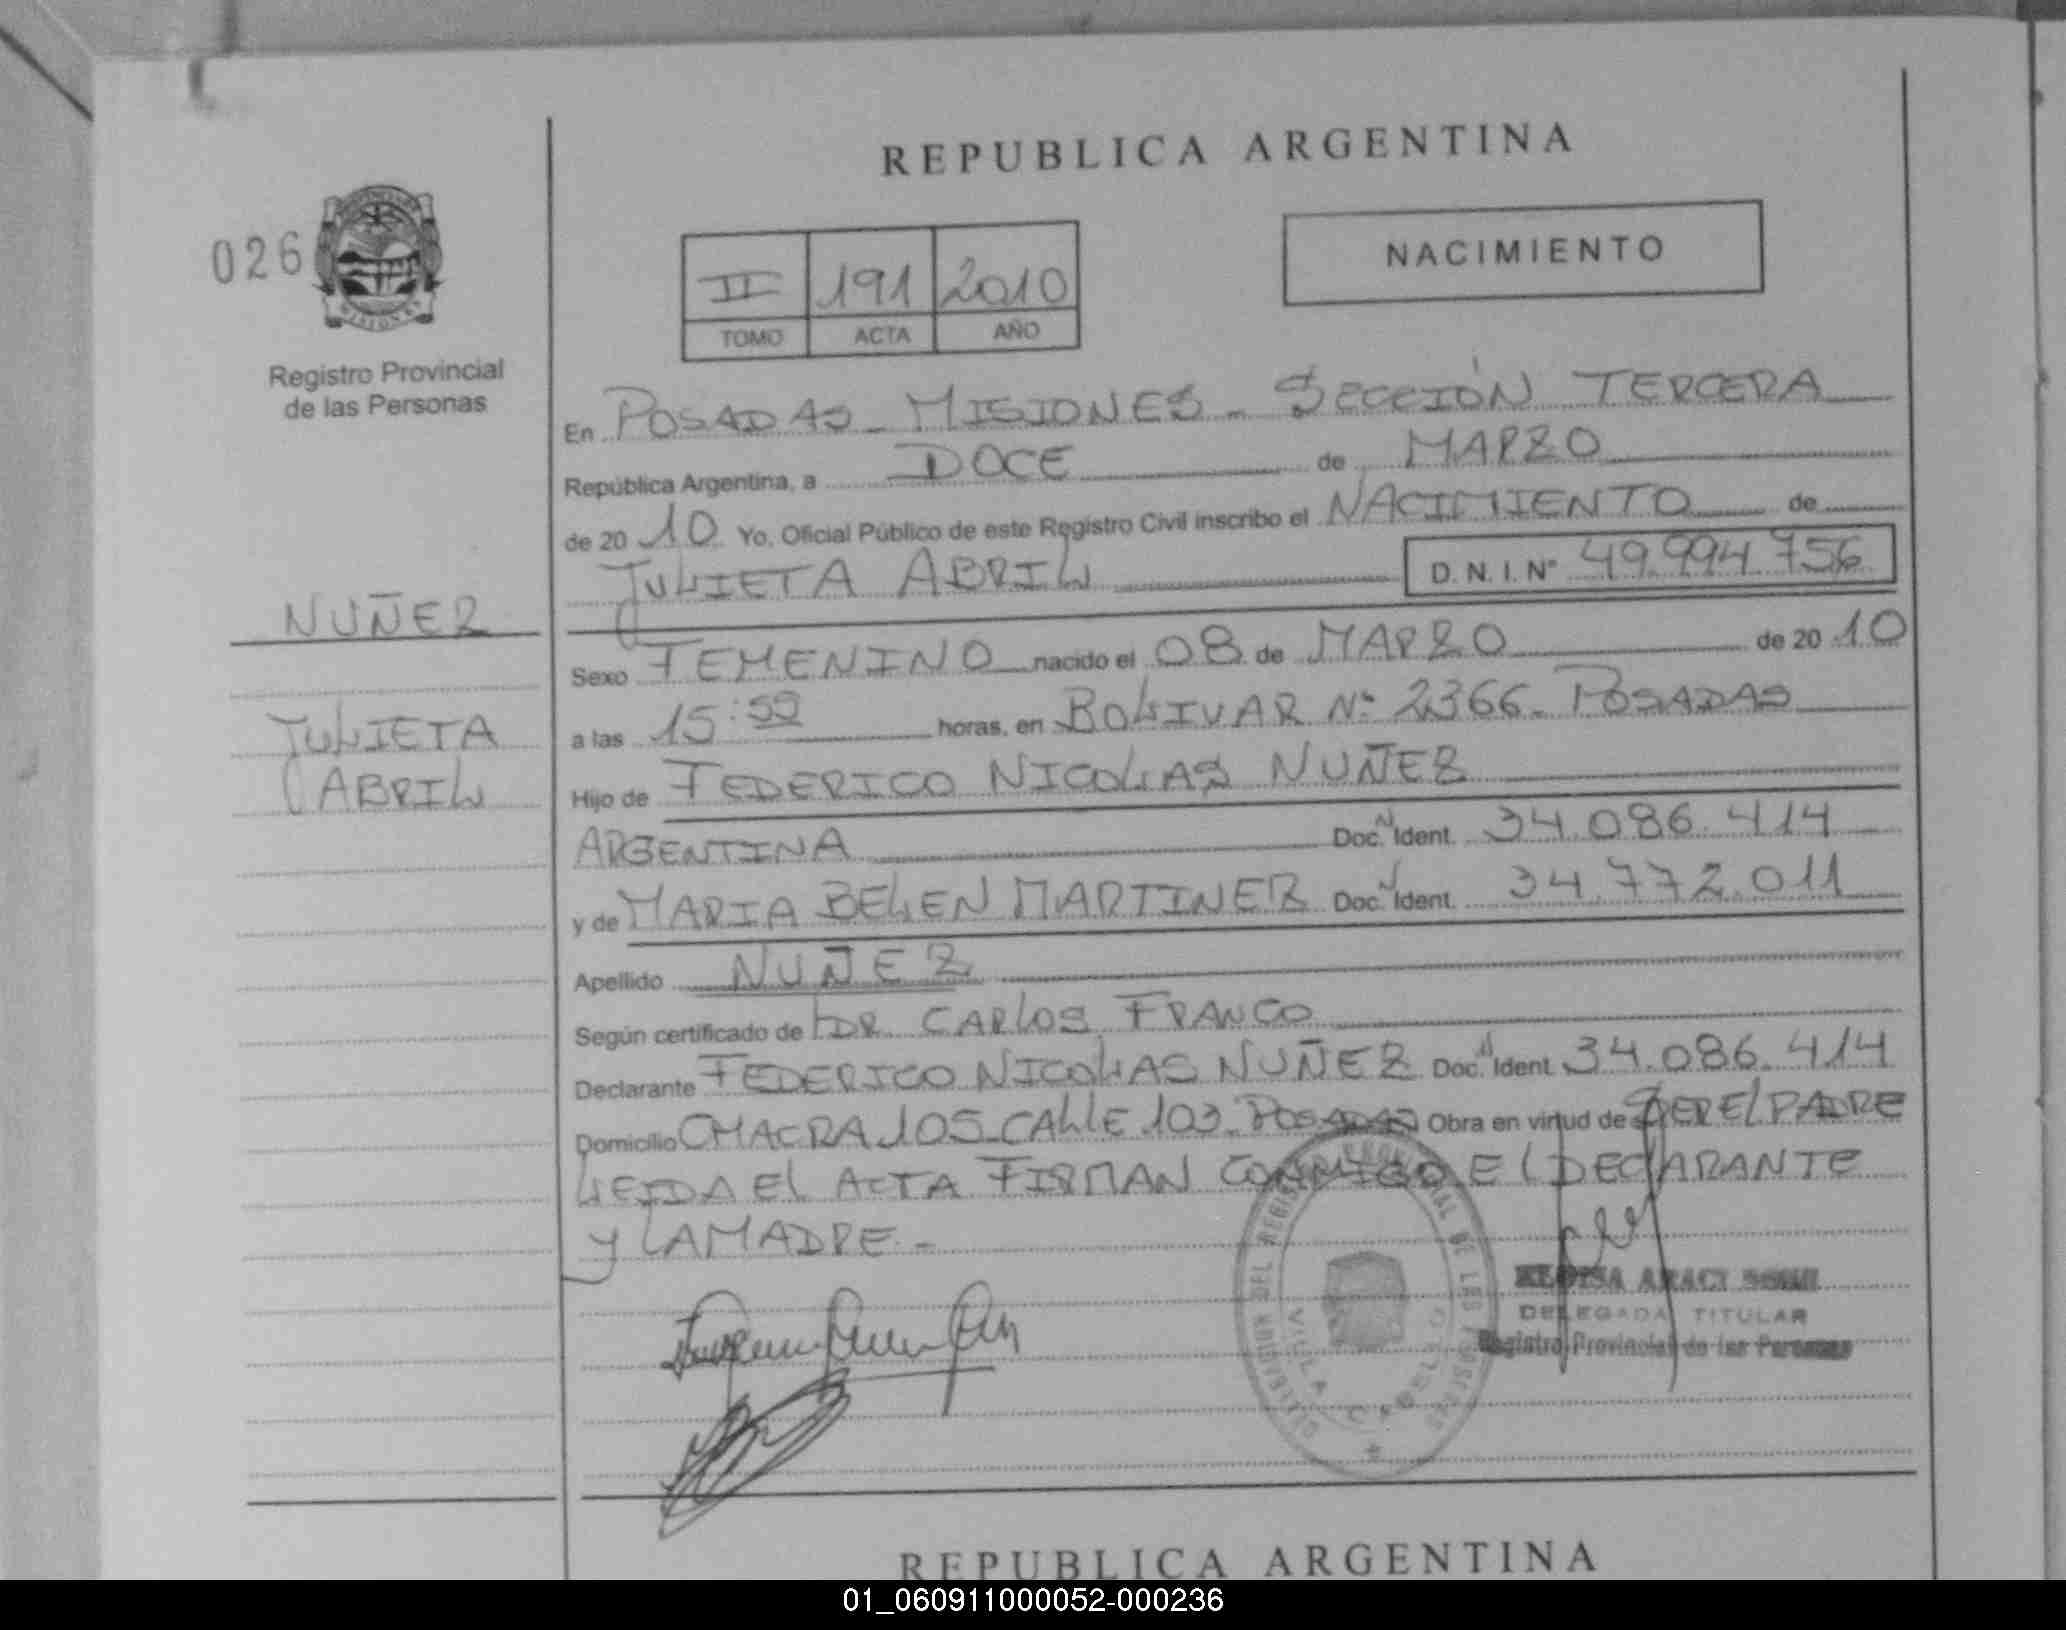 REPUBLICA ARGENTINA
026
II 191 2010
TOMO ACTA AÑO
NACIMIENTO
MISIONES
Registro Provincial
de las Personas
En POSADAS - MISIONES - SECCIÓN TERCERA
República Argentina, a DOCE de MARZO
de 2010 Yo, Oficial Público de este Registro Civil inscribo el NACIMIENTO de
JULIETA ABRIL D.N.I. Nº 49.994.756
NUÑEZ
JULIETA
ABRIL
Sexo FEMENINO nacido el 08 de MARZO de 2010
a las 15:59 horas, en BOLIVAR Nº 2366 - POSADAS
Hijo de FEDERICO NICOLAS NUÑEZ
ARGENTINA Doc. N Ident. 34.086.414
y de MARIA BELEN MARTINEZ Doc. N Ident. 34.772.011
Apellido NUÑEZ
Según certificado de DR. CARLOS FRANCO
Declarante FEDERICO NICOLAS NUÑEZ Doc. N Ident. 34.086.414
Domicilio CHACRA 105 - CALLE 103 - POSADAS Obra en virtud de SER EL PADRE
LEIDA EL ACTA FIRMAN CONMIGO El DECLARANTE
y LA MADRE -
DELEGACION DEL REGISTRO PROVINCIAL DE LAS PERSONAS
VILLA CABELLO
ARACI
DELEGADA TITULAR
Registro Provincial de las Personas
REPUBLICA ARGENTINA
01_060911000052-000236